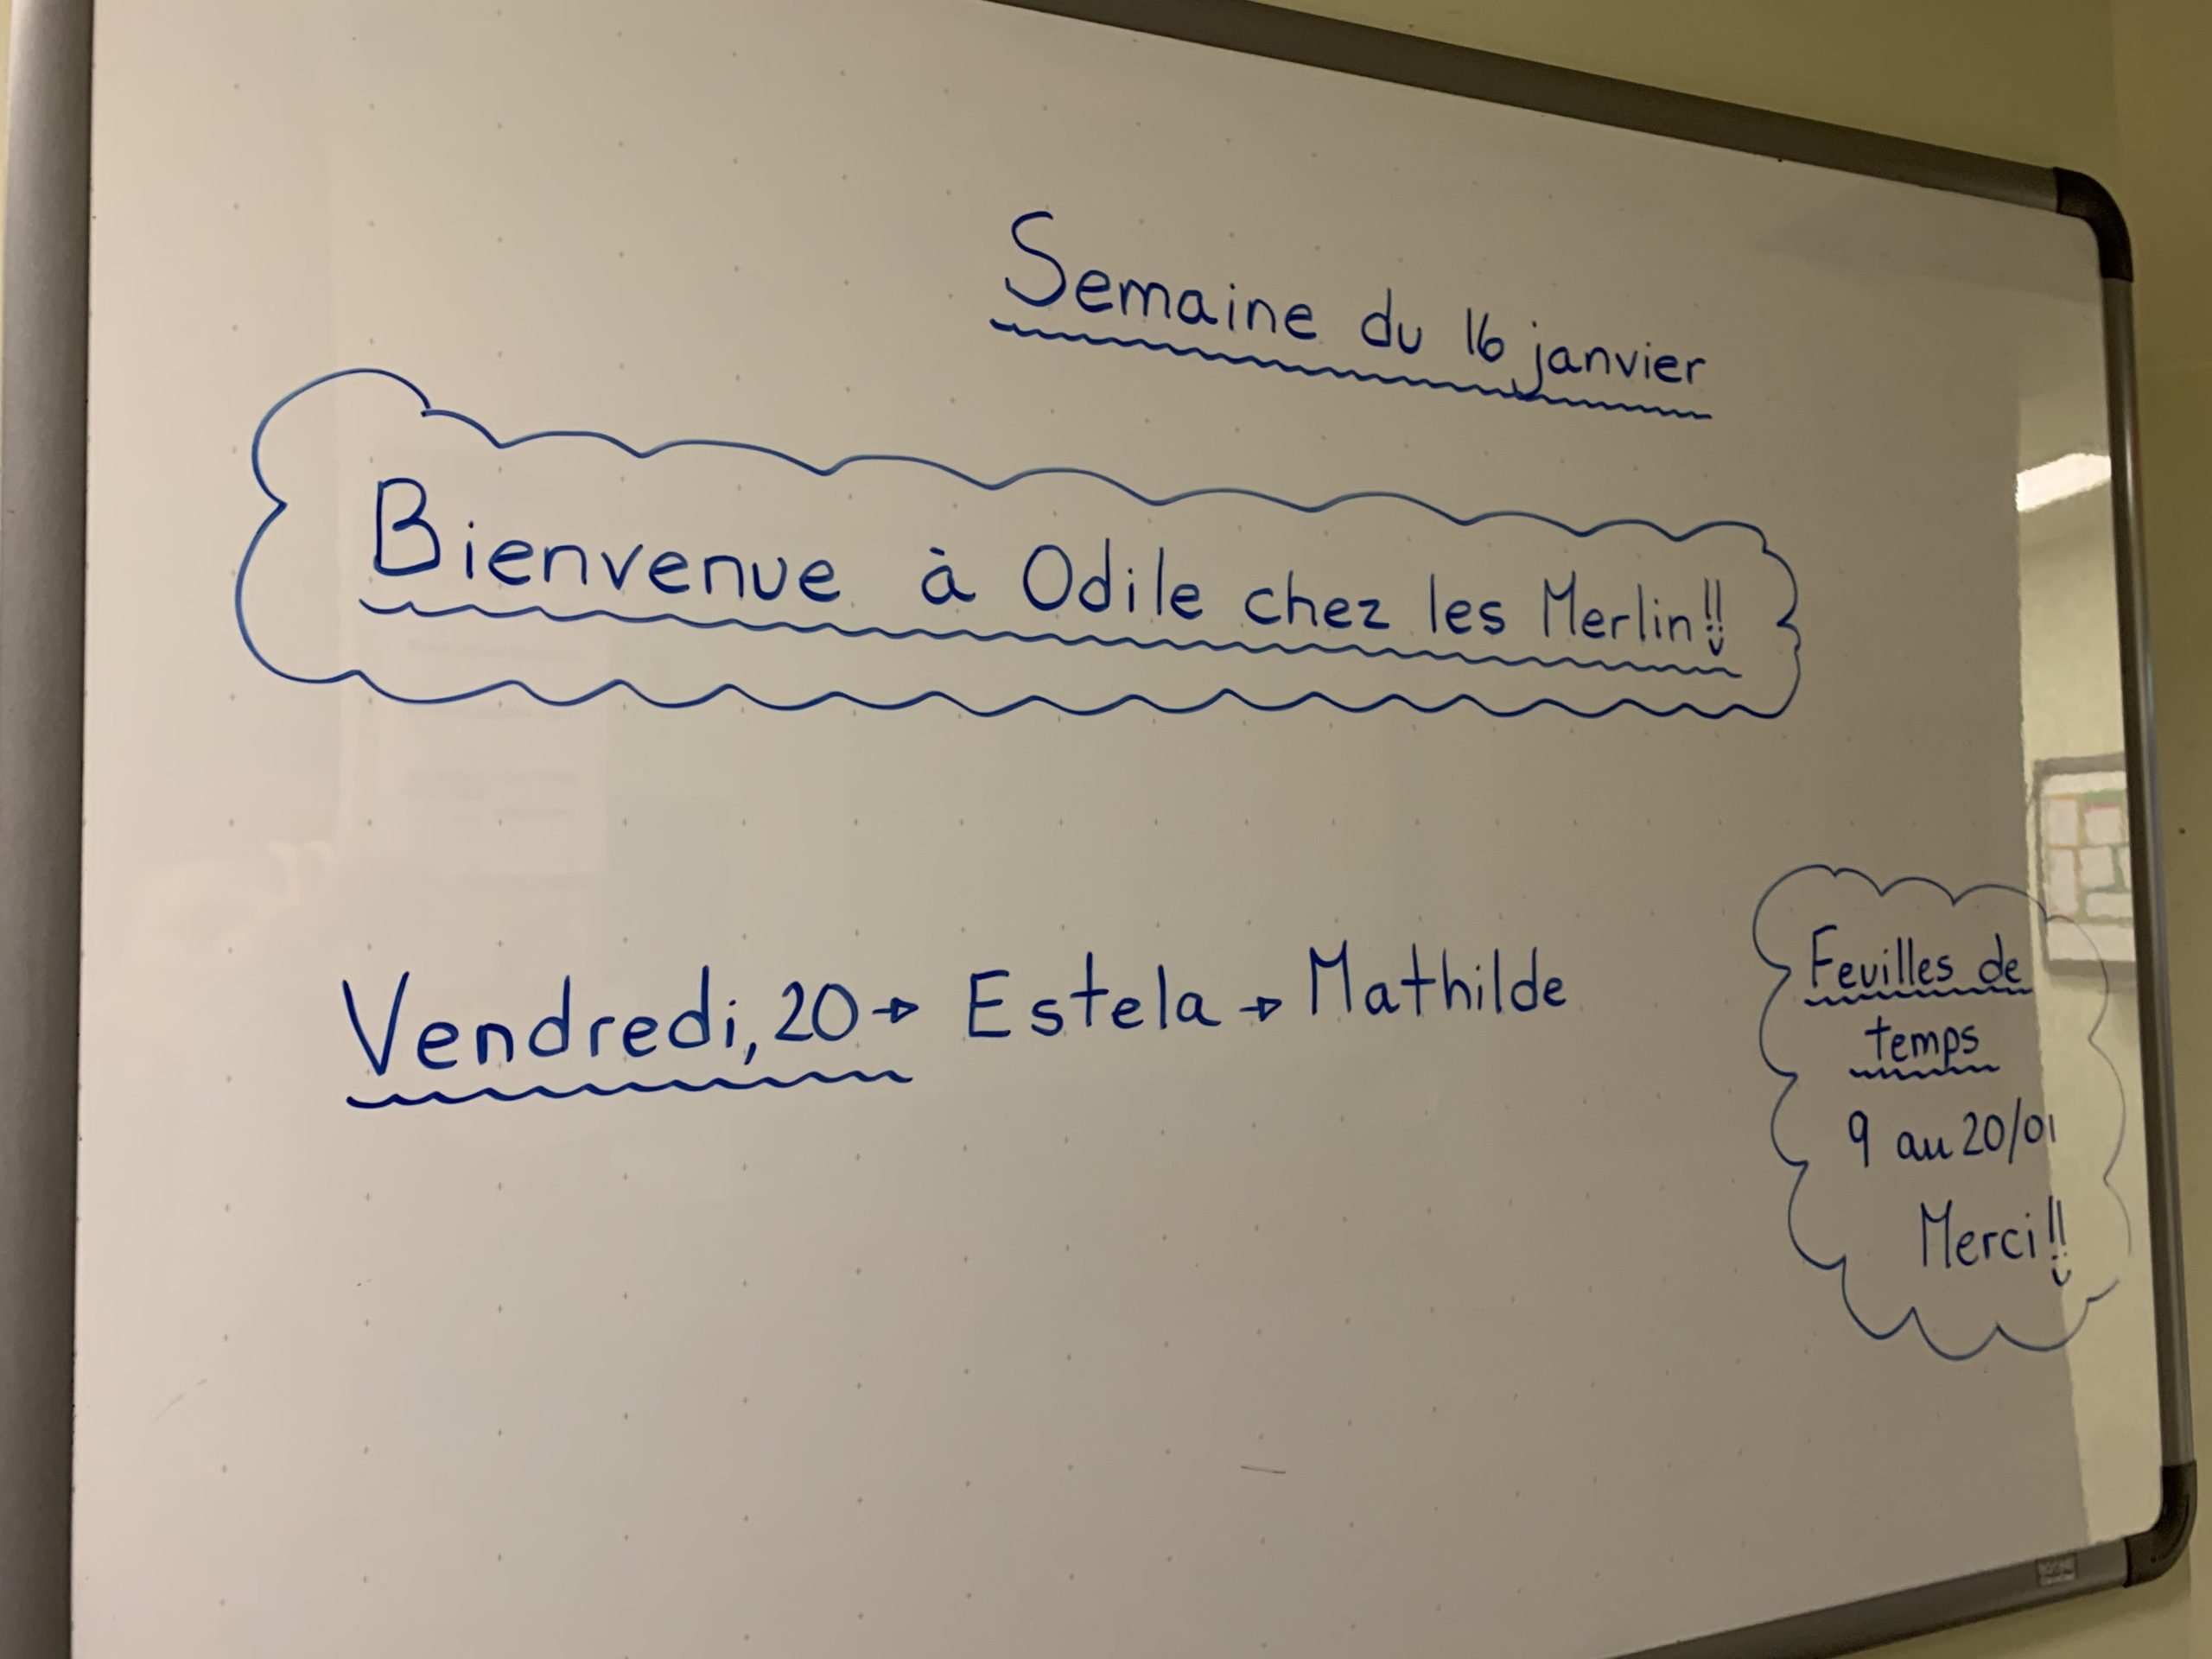 Semaine du 16 janvier
Bienvenue à Odile chez les Merlin!!
Vendredi, 20 → Estela → Mathilde
Feuilles de
temps
9 au 20/01
Merci!!